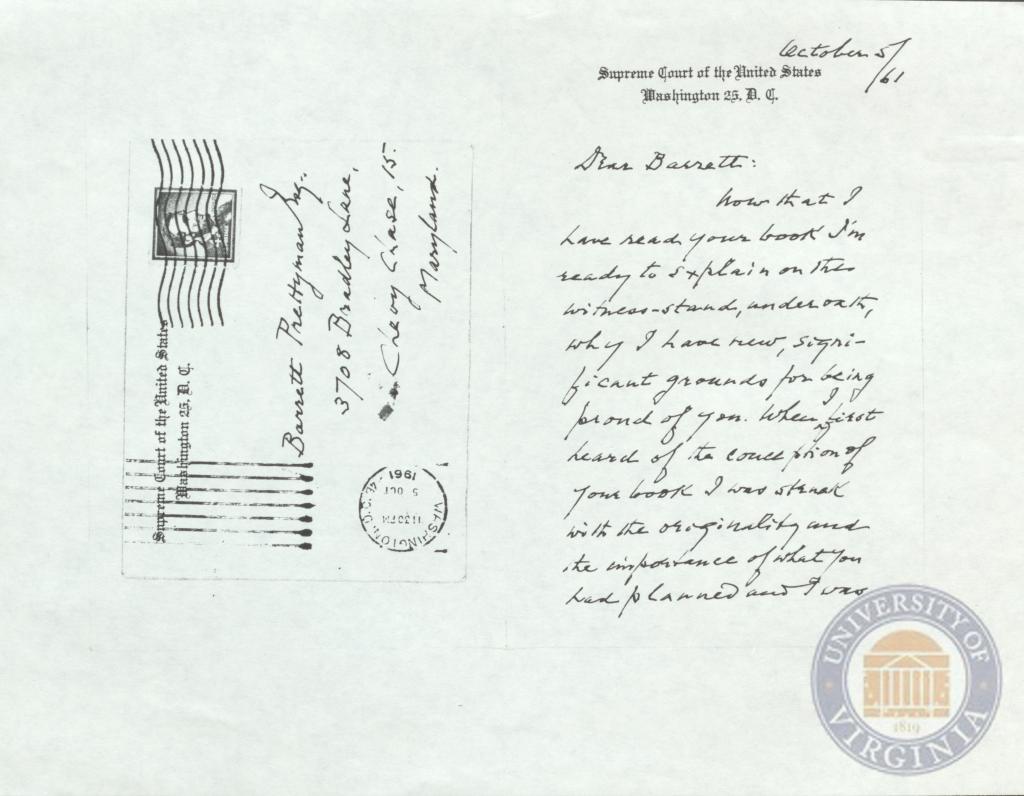 October 5/61
Supreme Court of the United States
Washington 25, D. C.
Dear Barrett:
Now that I
have read your book I'm
ready to explain on the
witness-stand, under oath,
why I have new, signi-
ficant grounds for being
proud of you. When I first
heard of the conception of
your book I was struck
with the originality and
the importance of what you
had planned and I was
Supreme Court of the United States
Washington 25, D. C.
Barrett Prettyman Esq.,
3708 Bradley Lane,
Chevy Chase, 15.
Maryland.
WASHINGTON, D.C.
11:30 PM
5 OCT
1961
UNIVERSITY OF
VIRGINIA
1819